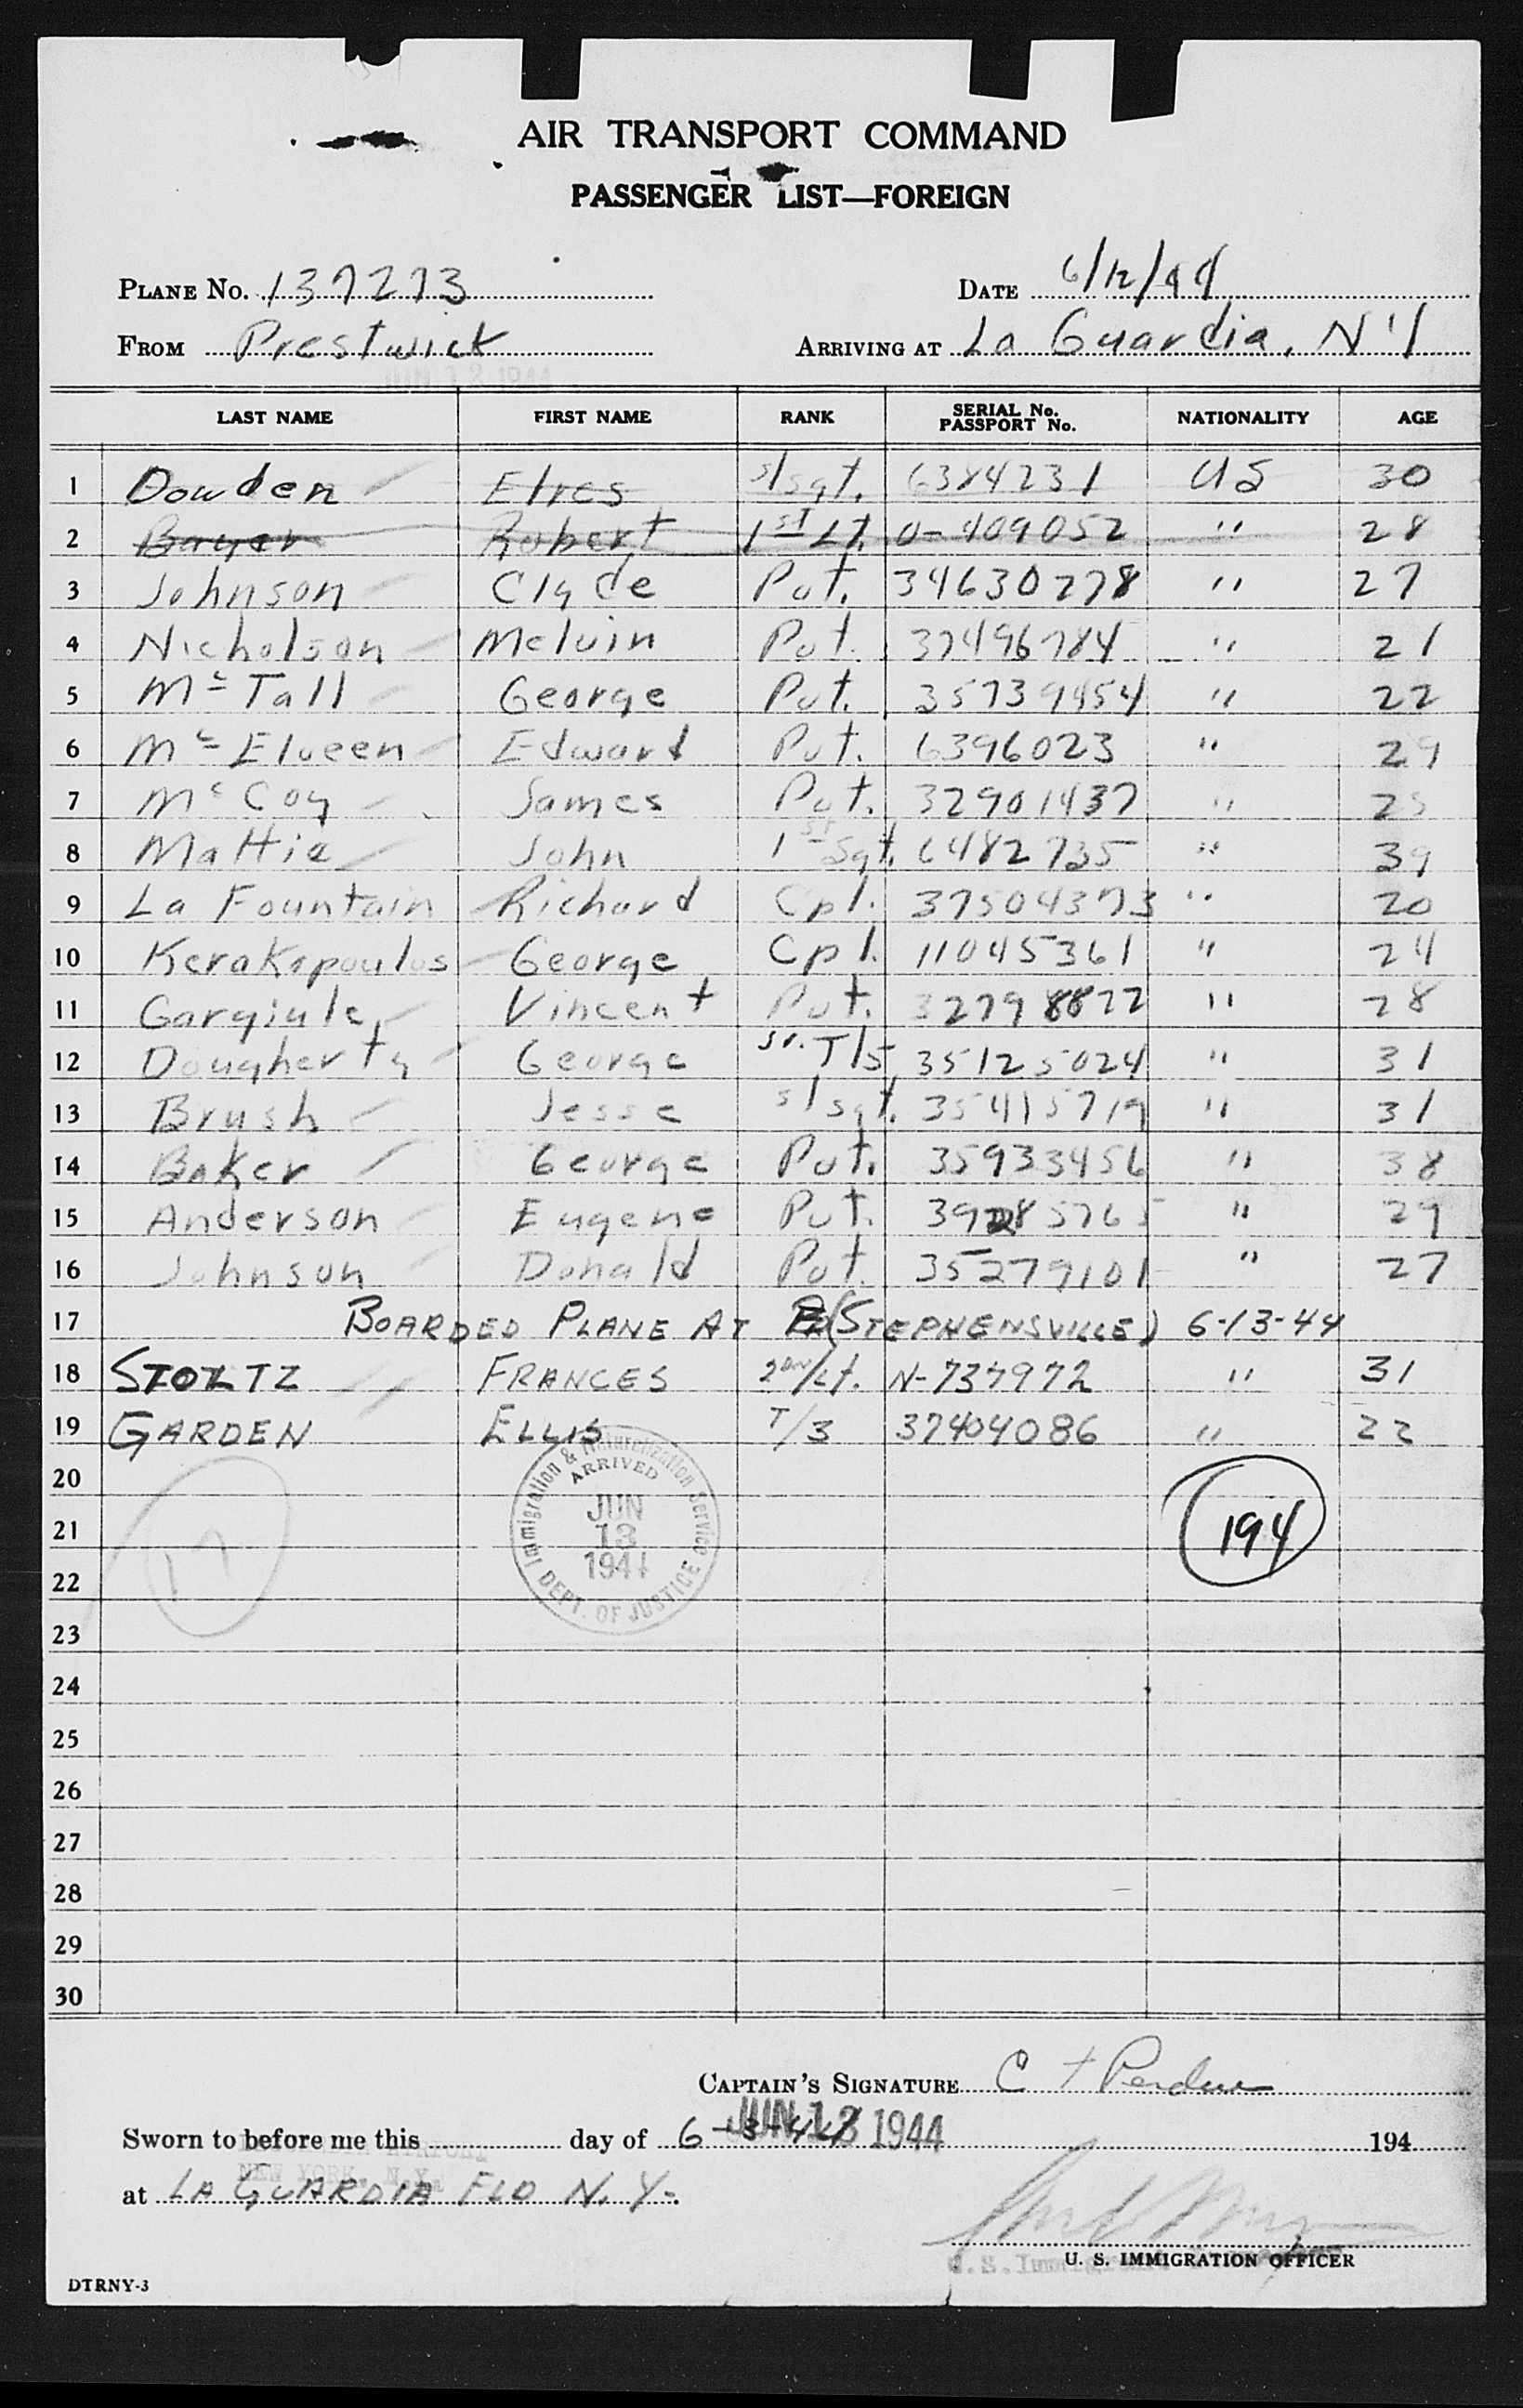 AIR TRANSPORT COMMAND
PASSENGER LIST—FOREIGN
PLANE No. 137273 DATE 6/12/44
FROM Prestwick ARRIVING AT La Guardia, NY
JUN 13 1944
LAST NAME FIRST NAME RANK SERIAL No. PASSPORT No. NATIONALITY AGE
1 Dowden Elres s/sgt. 6384231 US 30
2 Bayer Robert 1st Lt. O-409052 " 28
3 Johnson Clyde Pvt. 34630278 " 27
4 Nicholson Melvin Pvt. 37496784 " 21
5 Mc Tall George Pvt. 35739454 " 22
6 Mc Elveen Edward Pvt. 6396023 " 29
7 Mc Coy James Pvt. 32901437 " 25
8 Mattie John 1st Sgt. 6482735 " 39
9 La Fountain Richard Cpl. 37504373 " 20
10 Kerakopoulos George Cpl. 11045361 " 24
11 Gargiulo Vincent Pvt. 32798822 " 28
12 Dougherty George T/5 35125024 " 31
13 Brush Jesse s/sgt. 35415719 " 31
14 Baker George Pvt. 35933456 " 38
15 Anderson Eugene Pvt. 39285765 " 29
16 Johnson Donald Pvt. 35279101 " 27
17 BOARDED PLANE AT (STEPHENSVILLE) 6-13-44
18 STOLTZ FRANCES 2nd/Lt. N-737972 " 31
19 GARDEN ELLIS T/3 37404086 " 22
20
21
22
23
24
25
26
27
28
29
30
17
Immigration & Naturalization Service
ARRIVED
JUN
13
1944
DEPT. OF JUSTICE
194
CAPTAIN'S SIGNATURE C Perdue
Sworn to before me this day of 6-13-44 JUN 13 1944 194
NEW YORK, N.Y.
at LA GUARDIA FLD N.Y.
U. S. IMMIGRATION OFFICER
DTRNY-3